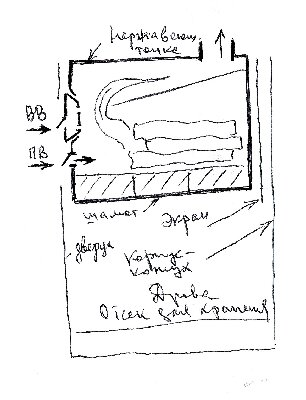 Нержавеющ.
топка
ВВ
ПВ
шамот
Экран
дверца
Корпус-
кожух
Дрова
Отсек для хранения